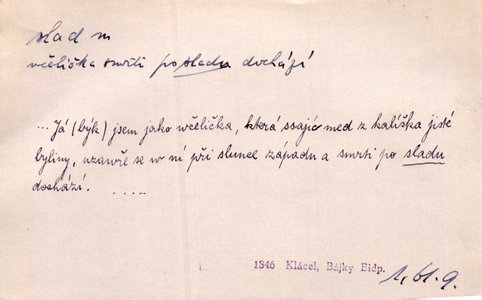 slad m
včelička smrti po sladu dochází
... Já (býk) jsem jako wčelička, která ssajíc med z kalíška jisté
byliny, uzawře se w ní při slunce západu a smrti po sladu
dochází. ....
1846 Klácel, Bájky Bidp.
1, 61.9.